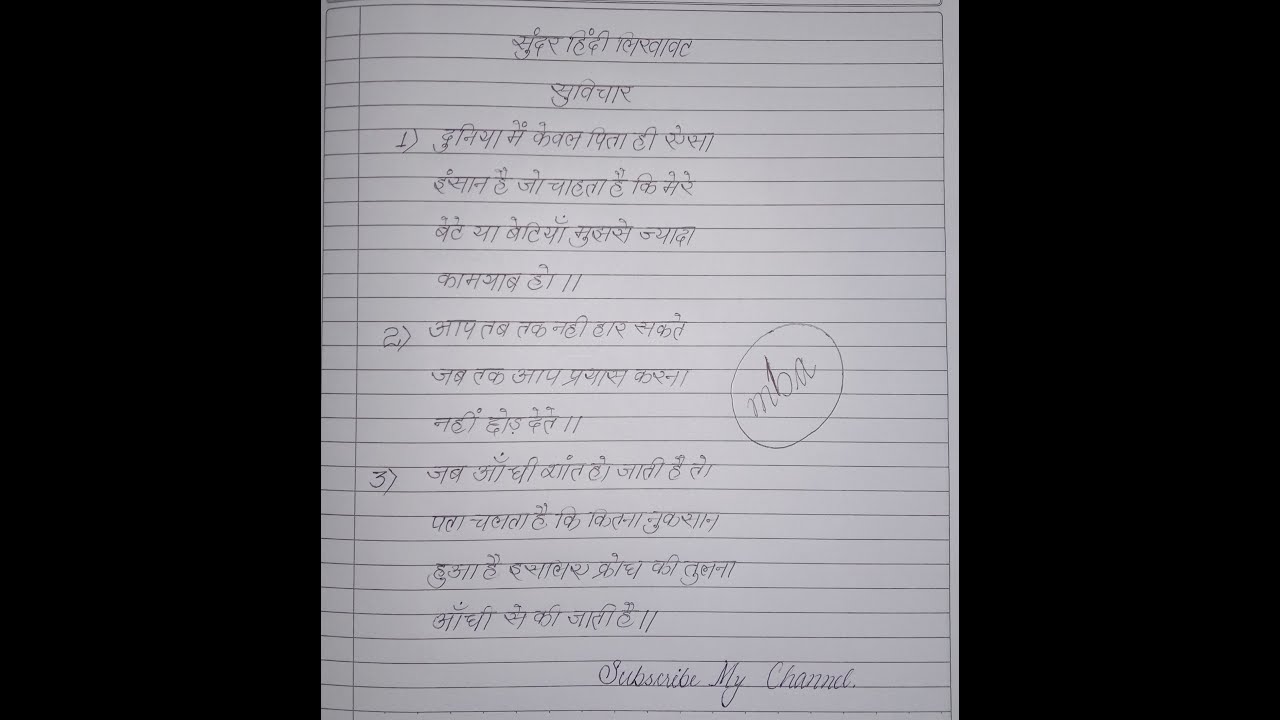 सुंदर हिंदी लिखावट
सुविचार
1) दुनिया में केवल पिता ही ऐसा
इंसान है जो चाहता है कि मेरे
बेटे या बेटियाँ मुझसे ज्यादा
कामयाब हो।।
2) आप तब तक नही हार सकते
जब तक आप प्रयास करना
नहीं छोड़ देते।।
mba
3) जब आँधी शांत हो जाती है तो
पता चलता है कि कितना नुकशान
हुआ है इसलिए क्रोध की तुलना
आँधी से की जाती है।।
Subscribe My Channel.